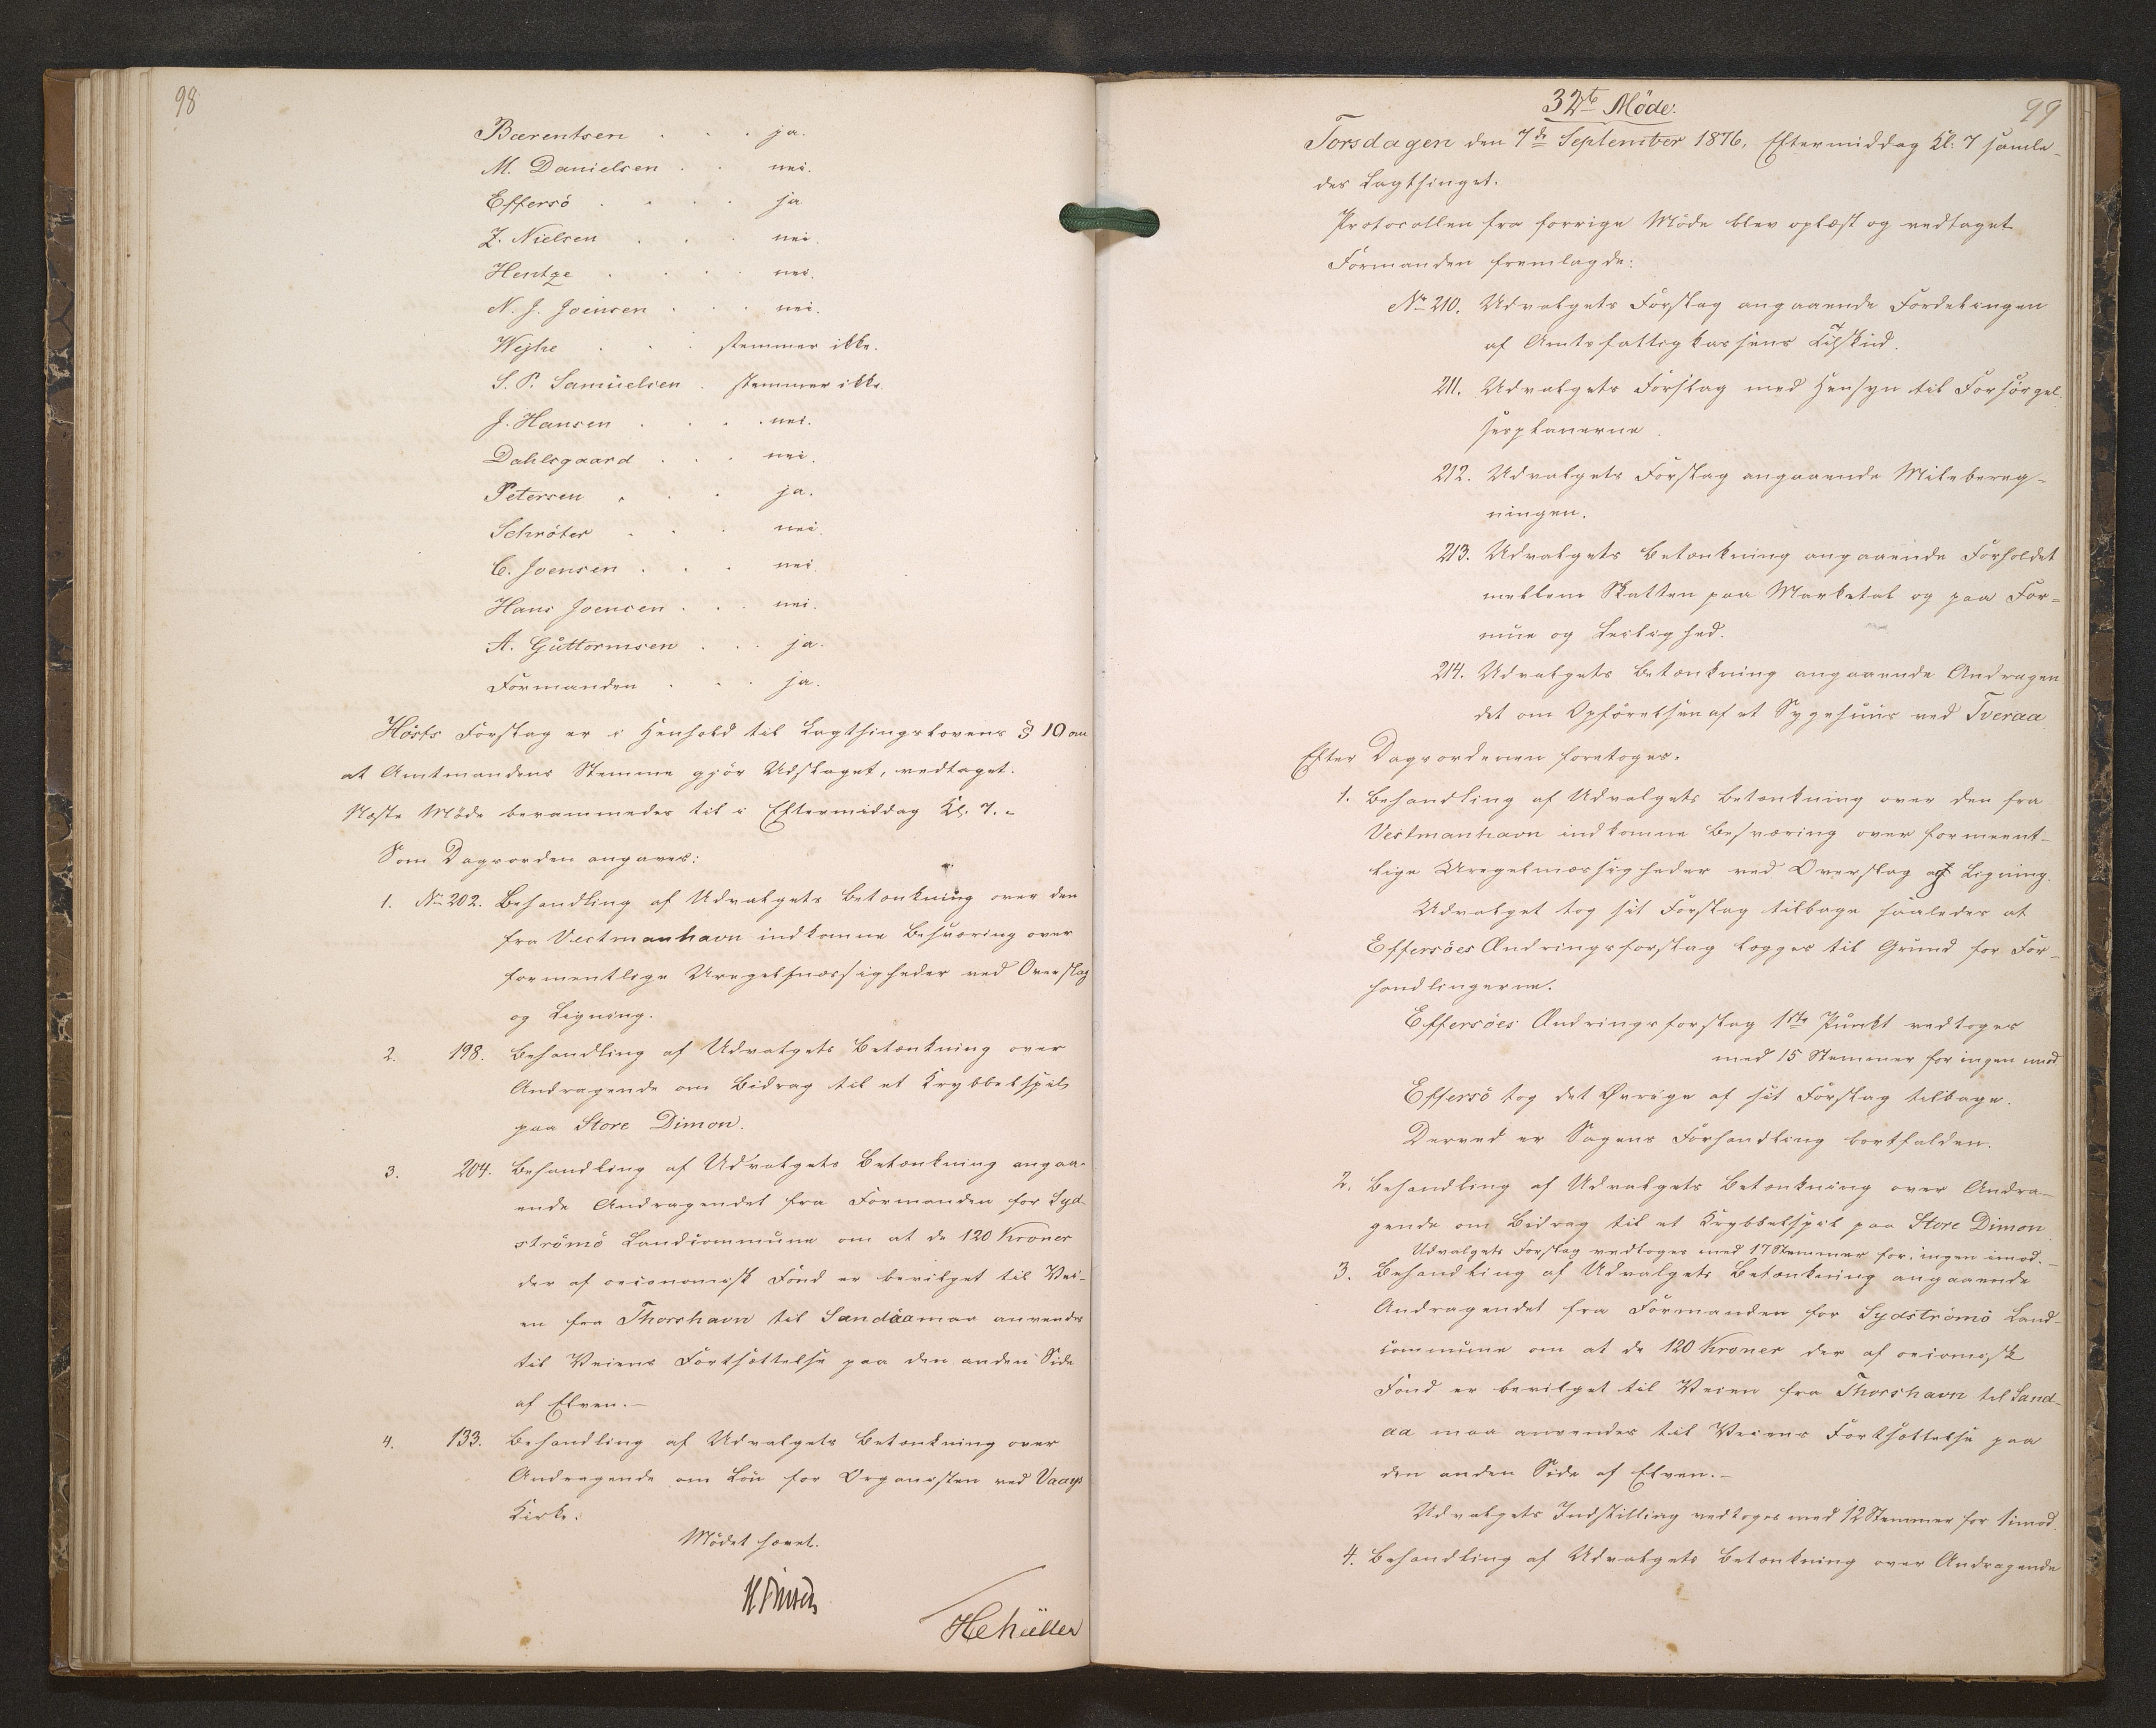 98
Bærentsen . . . ja.
M. Danielsen . . nei.
Effersö . . . . ja
Z. Nielsen . . . nei.
Hentze . . . . nei.
N. J. Joensen . . . nei.
Wejhe . . . stemmer ikke.
S. P. Samuelsen . stemmer ikke.
J. Hansen . . . . nei.
Dahlsgaard . . . nei.
Petersen . . . ja.
Schröter . . . nei.
C. Joensen . . . nei.
Hans Joensen . . . nei.
A. Guttormsen . . . ja.
Formanden . . . ja.
Hösts Forslag er i Henhold til Lagthingslovens § 10 om
at Amtmandens Stemme gjör Udslaget, vedtaget.
Næste Möde berammedes til i Eftermiddag Kl. 7.
Som Dagsorden angaves:
1. No 202. Behandling af Udvalgets Betænkning over den
fra Vestmanhavn indkomne Besværing over
formentlige Uregelmæssigheder ved Overslag
og Ligning.
2. 198. Behandling af Udvalgets Betænkning over
Andragende om Bidrag til et Krybbelspil
paa Store Dimon.
3. 204. Behandling af Udvalgets Betænkning angaa-
ende Andragendet fra Formanden for Syd-
strömö Landcommune om at de 120 Kroner
der af oeconomisk Fond er bevilget til Vei-
en fra Thorshavn til Sandaa maa anvendes
til Veiens Fortsættelse paa den anden Side
af Elven.-
4. 133. Behandling af Udvalgets Betænkning over
Andragende om Lön for Organisten ved Vaags
Kirke.
Mödet hævet.
HMüller
99
32te Möde.
Torsdagen den 7de September 1876, Eftermiddag Kl. 7 samle-
des Lagthinget.
Protocollen fra forrige Möde blev oplæst og vedtaget
Formanden fremlagde:
No 210. Udvalgets Forslag angaaende Fordelingen
af Amtsfattigkassens Tilskud.
211. Udvalgets Forslag med Hensyn til Forsörgel-
sesplanerne.
212. Udvalgets Forslag angaaende Milebereg-
ningen.
213. Udvalgets Betænkning angaaende Forholdet
mellem Skatten paa Marketal og paa For-
mue og Leilighed.
214. Udvalgets Betænkning angaaende Andragen
det om Opförelsen af et Sygehuus ved Tveraa
Efter Dagsordenen foretoges.
1. Behandling af Udvalgets Betænkning over den fra
Vestmanhavn indkomne Besværing over formeent-
lige Uregelmæssigheder ved Overslag og Ligning.
Udvalget tog sit Forslag tilbage saaledes at
Effersöes Ændringsforslag lægges til Grund for For-
handlingerne.
Effersöes Ændringsforslag 1ste Punkt vedtoges
med 15 Stemmer for ingen imod.
Effersö tog det Övrige af sit Forslag tilbage.
Derved er Sagens Forhandling bortfalden.
2. Behandling af Udvalgets Betænkning over Andra-
gende om Bidrag til et Krybbelspil paa Store Dimon
Udvalgets Forslag vedtoges med 17 Stemmer for, ingen imod.-
3. Behandling af Udvalgets Betænkning angaaende
Andragendet fra Formanden for Sydströmö Land-
commune om at de 120 Kroner der af oecomisk
Fond er bevilget til Veien fra Thorshavn til Sand-
aa maa anvendes til Veiens Fortsættelse paa
den anden Side af Elven.-
Udvalgets Indstilling vedtoges med 12 Stemmer for 1 imod.
4. Behandling af Udvalgets Betænkning over Andragende